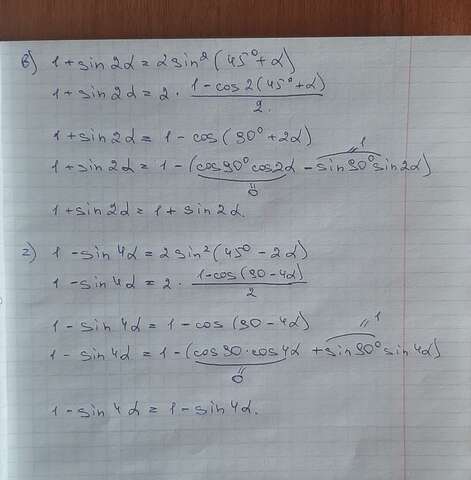 в) 1 + sin 2α = 2 sin² (45° + α)
1 + sin 2α = 2 · (1 - cos 2(45° + α))/2.
1 + sin 2α = 1 - cos (90° + 2α)
1 + sin 2α = 1 - (cos 90° cos 2α - sin 90° sin 2α)
0
1
1 + sin 2α = 1 + sin 2α.
г) 1 - sin 4α = 2 sin² (45° - 2α)
1 - sin 4α = 2 · (1 - cos (90 - 4α))/2
1 - sin 4α = 1 - cos (90 - 4α)
1 - sin 4α = 1 - (cos 90 · cos 4α + sin 90° sin 4α)
0
1
1 - sin 4α = 1 - sin 4α.